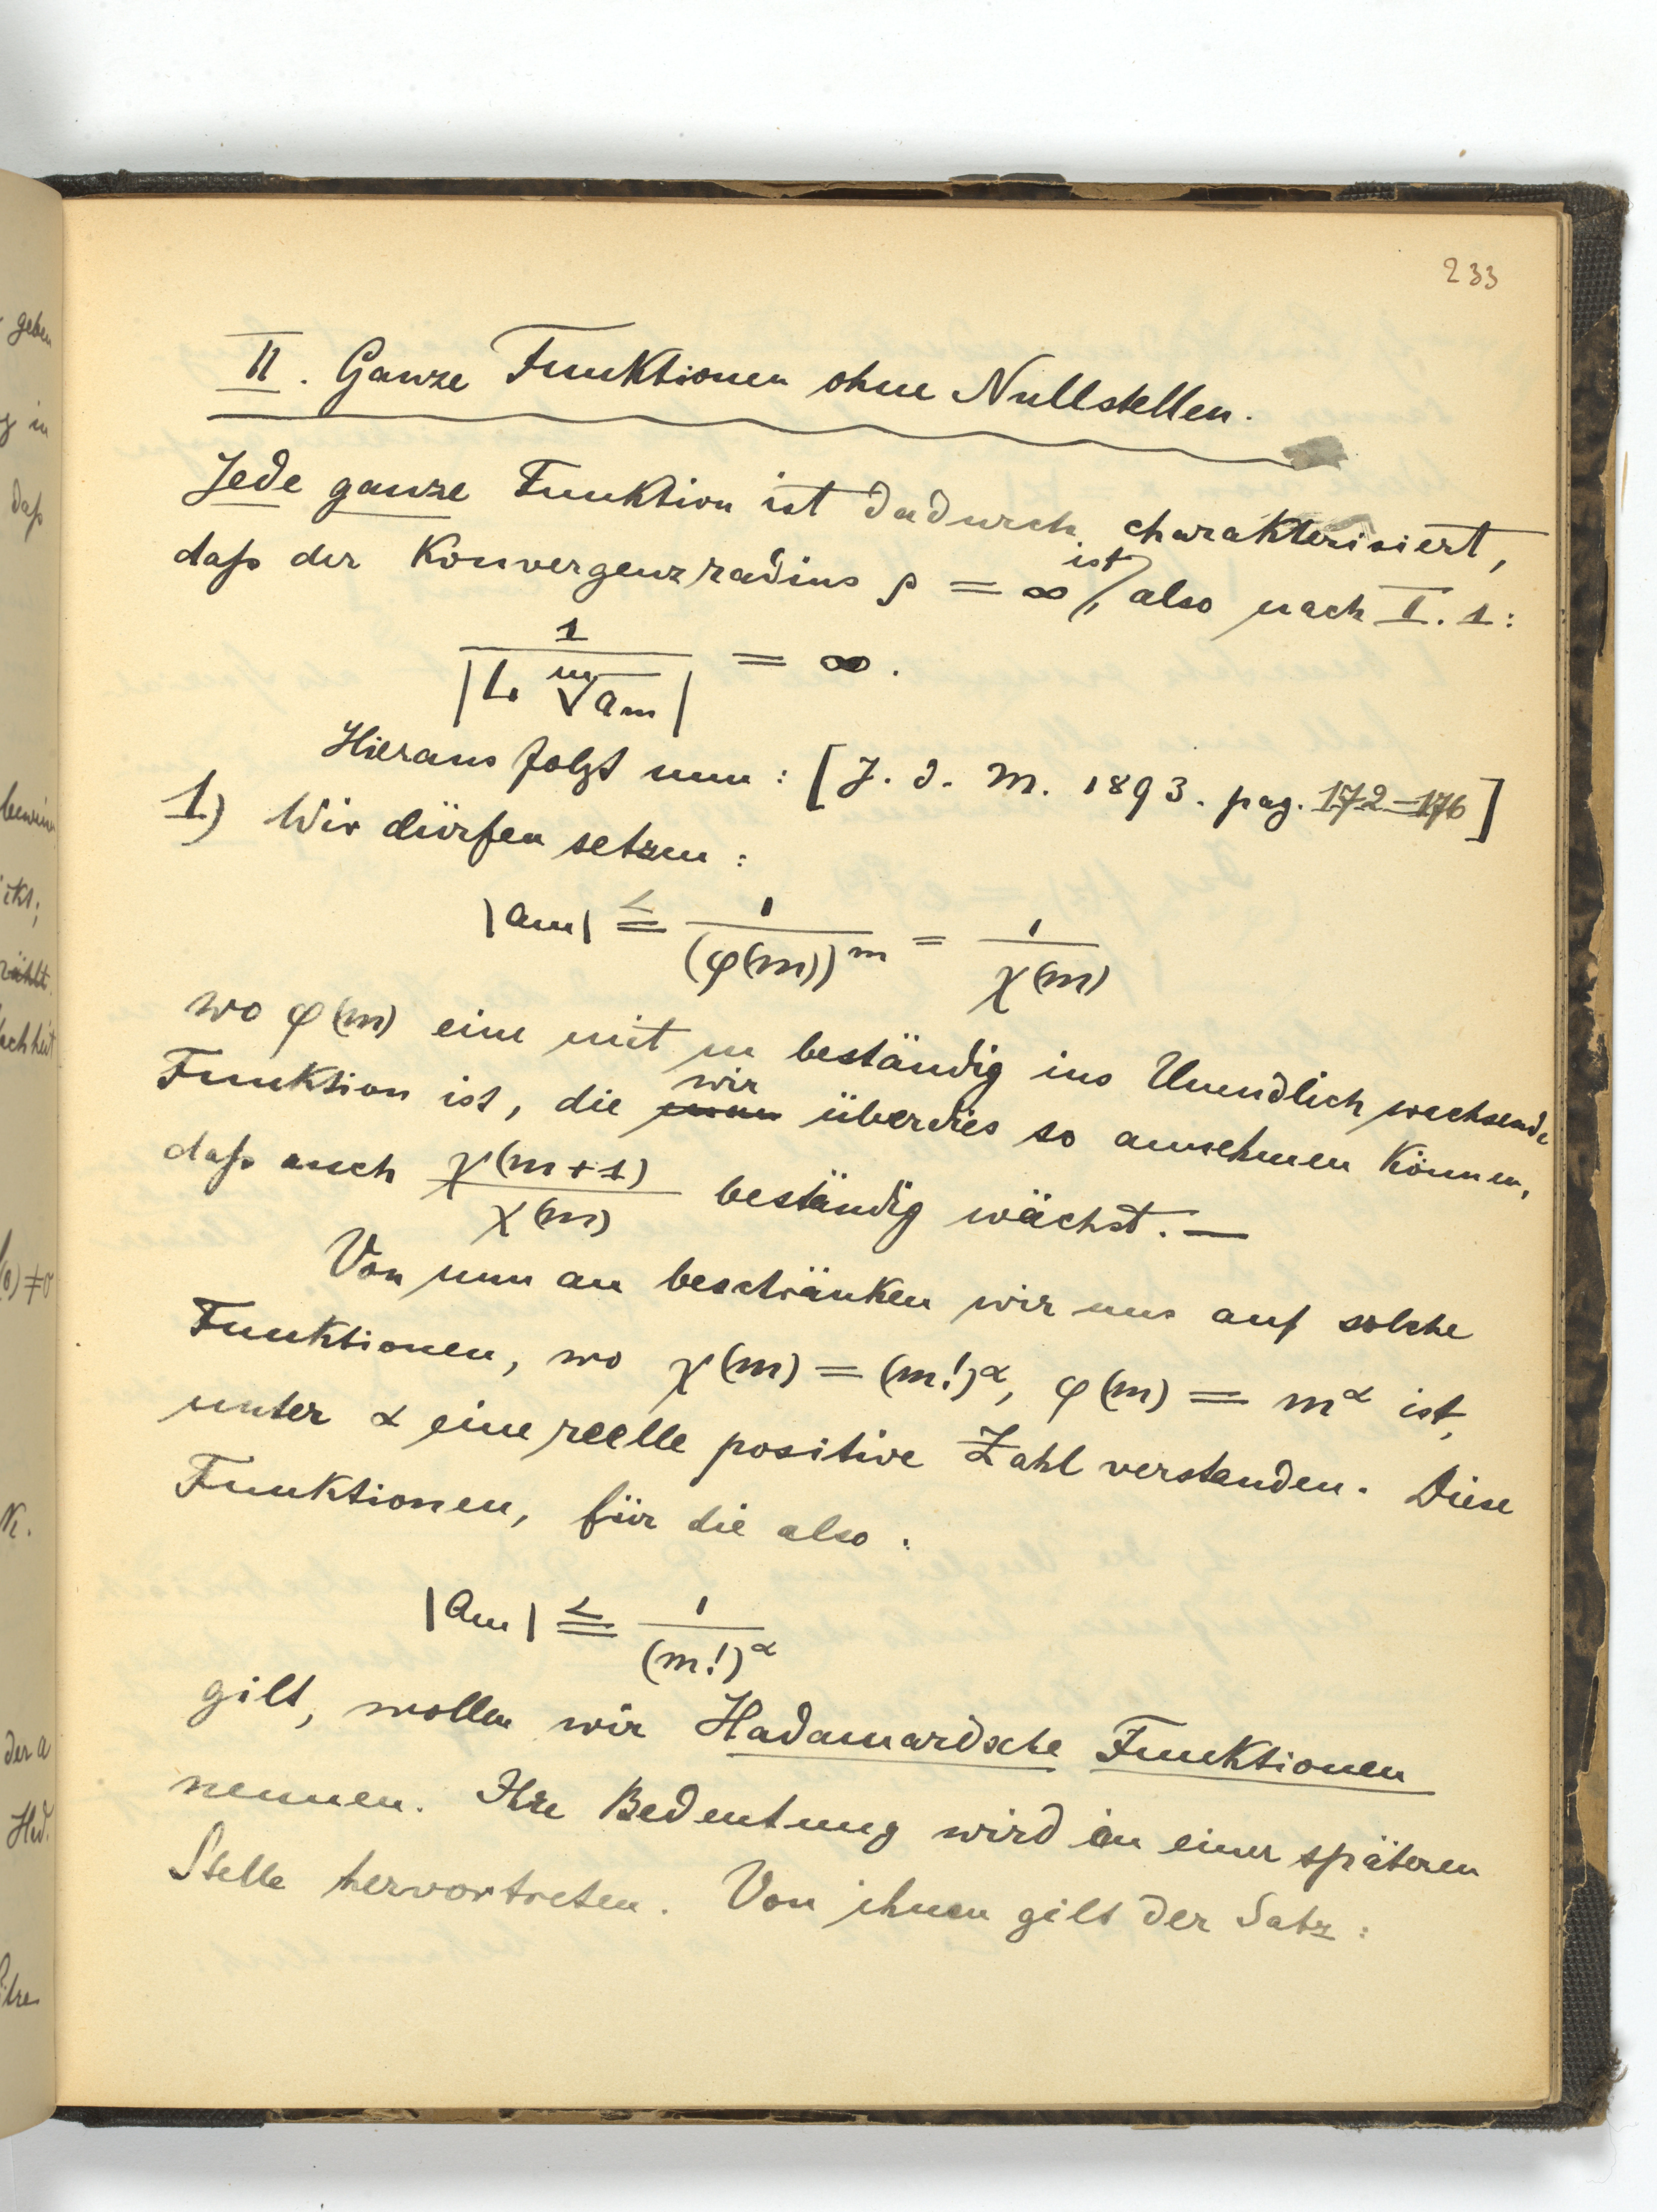 233
II. Ganze Funktionen ohne Nullstellen.
Jede ganze Funktion ist dadurch charakterisiert,
daß der Konvergenzradius ρ = ∞ ist, also nach I. 1:
1 / |L. ᵐ√aₘ| = ∞.
Hieraus folgt nun: [J. d. M. 1893. pag. 172–176]
1) Wir dürfen setzen:
|aₘ| ≦ 1/(φ(m))ᵐ = 1/χ(m)
wo φ(m) eine mit m beständig ins Unendlich wachsende
Funktion ist, die wir überdies so annehmen können,
daß auch χ(m+1)/χ(m) beständig wächst. —
Von nun an beschränken wir uns auf solche
Funktionen, wo χ(m) = (m!)^α, φ(m) = m^α ist,
unter α eine reelle positive Zahl verstanden. Diese
Funktionen, für die also:
|aₘ| ≦ 1/(m!)^α
gilt, wollen wir Hadamardsche Funktionen
nennen. Ihre Bedeutung wird an einer späteren
Stelle hervortreten. Von ihnen gilt der Satz:
geben
g in
daß
ikt;
(0) ≠ 0
K.
der a